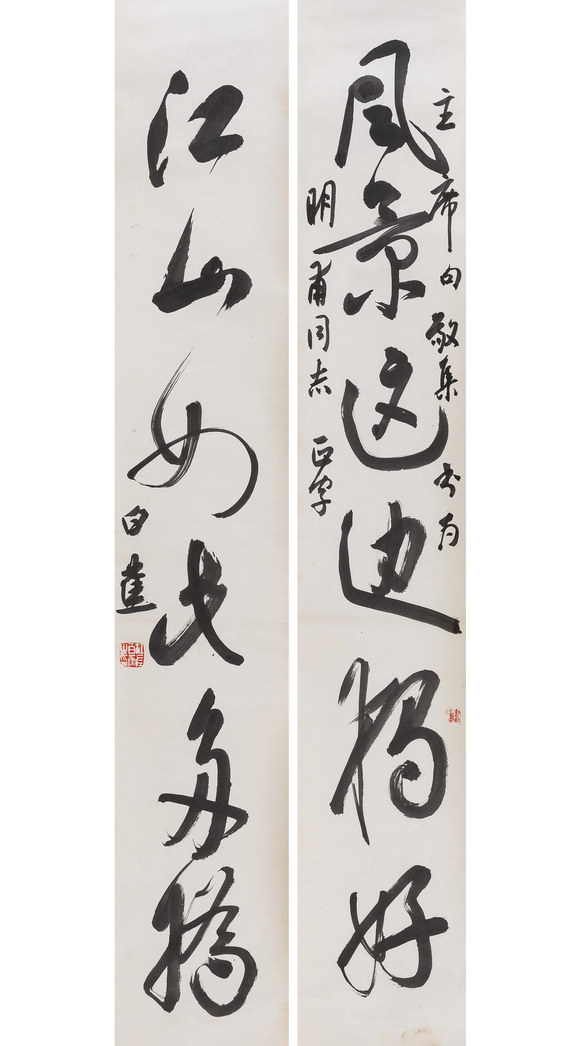 主席句敬集书为
風景这边獨好
明甫同志正字
江山如此多嬌
白蕉